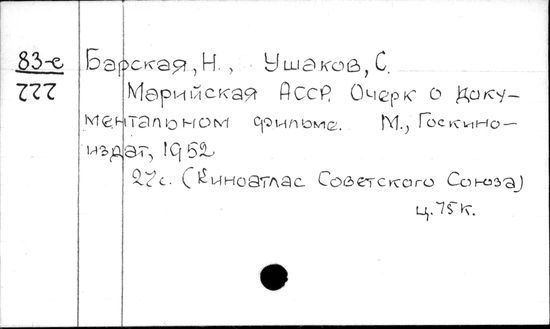 83-е Барская, Н., Ушаков, С.
222 Марийская АССР. Очерк о доку-
ментальном фильме. М., Госкино-
издат, 1952
27с. (Киноатлас Советского Союза)
ц. 75к.